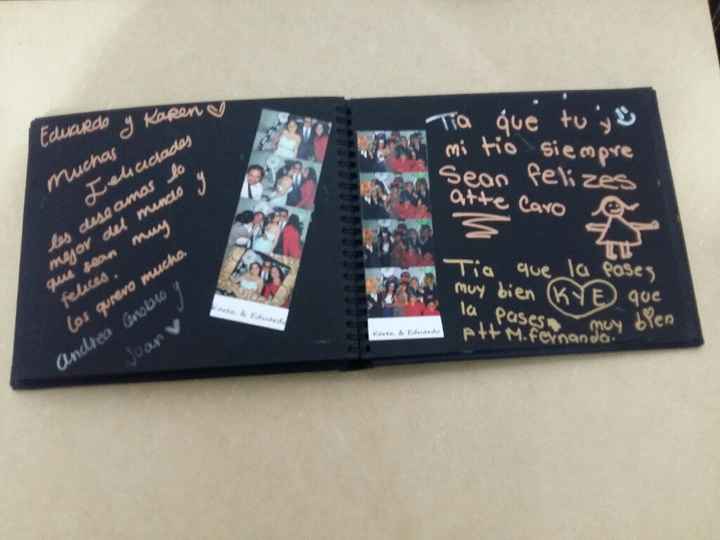 Eduardo y Karen
Muchas
Felicidades
les deseamos lo
mejor del mundo y
que sean muy
felices.
Los quiero mucho.
Andrea
Juan
Karen & Eduardo
Karen & Eduardo
Tia que tu y
mi tio siempre
Sean felizes
atte Caro
Tia que la pases
muy bien KYE que
la pases muy bien
Att M. Fernanda.